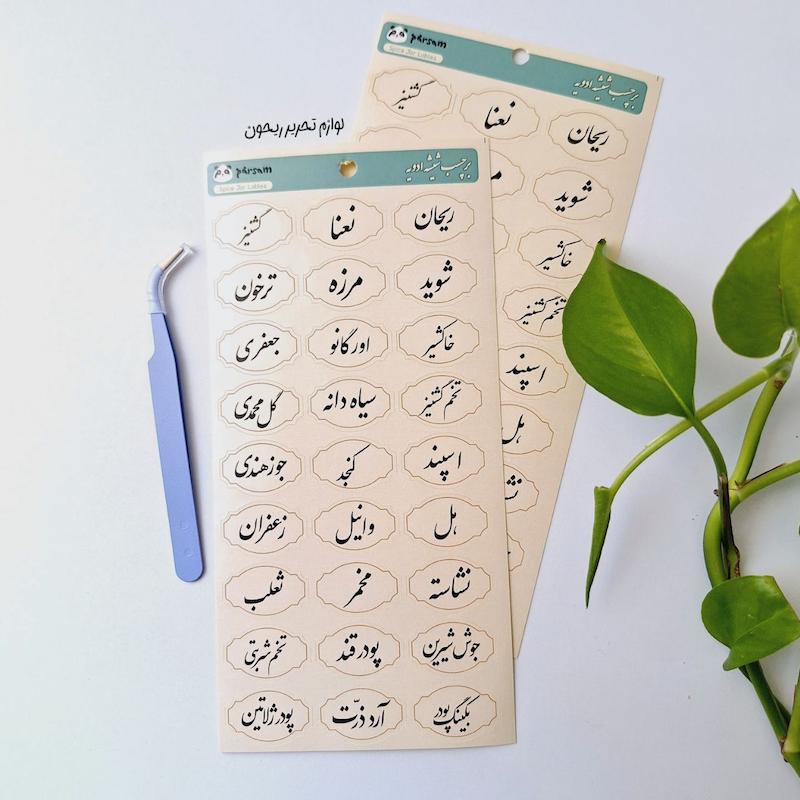 parsam
برچسب شیشه ادویه
Spice Jar Lables
ریحان
نعنا
گشنیز
شوید
خاکشیر
تخم گشنیز
اسپند
هل
لوازم تحریر ریحون
parsam
برچسب شیشه ادویه
Spice Jar Lables
ریحان نعنا گشنیز
شوید مرزه ترخون
خاکشیر اورگانو جعفری
تخم گشنیز سیاه دانه گل محمدی
اسپند کنجد جوزهندی
هل وانیل زعفران
نشاسته مخمر ثعلب
جوش شیرین پودر قند تخم شربتی
بکینگ پودر آرد ذرّت پودر ژلاتین